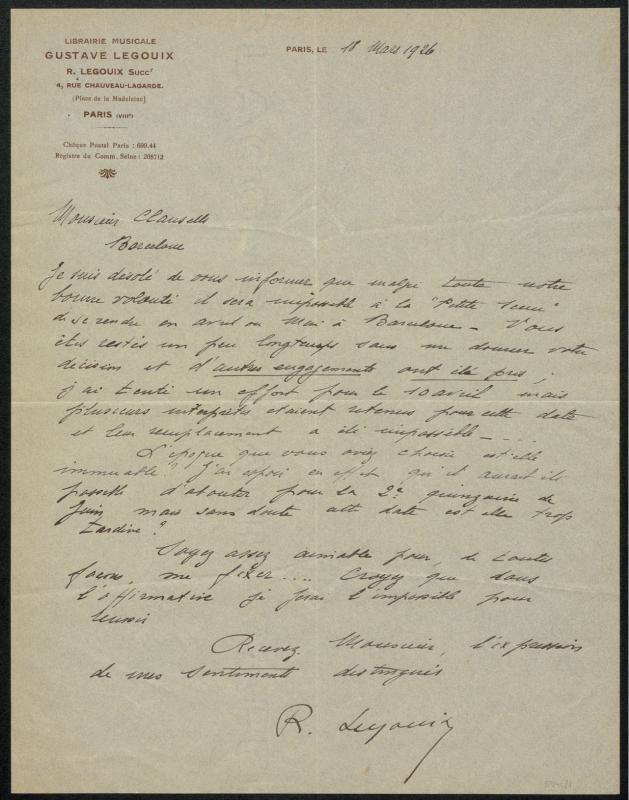 LIBRAIRIE MUSICALE
GUSTAVE LEGOUIX
R. LEGOUIX SUCCr
4, RUE CHAUVEAU-LAGARDE.
(Place de la Madeleine)
PARIS (VIIIe)
Chèque Postal Paris : 699.44
Registre du Comm. Seine : 208712
PARIS, LE 18 Mars 1926
Monsieur Clausells
Barcelone
Je suis désolé de vous informer que malgré toute notre
bonne volonté il sera impossible à la "Petite Scene"
de se rendre en avril ou Mai à Barcelone – Vous
êtes restés un peu longtemps sans me donner votre
décision et d'autres engagements ont été pris ;
j'ai tenté un effort pour le 10 avril mais
plusieurs interprètes étaient retenus pour cette date
et leur remplacement a été impossible – . . .
L'époque que vous aviez choisie est elle
immuable ? J'ai espoir en effet qu'il aurait été
possible d'aboutir pour la 2e quinzaine de
Juin mais sans doute cette date est elle trop
tardive ?
Soyez assez aimable pour, de toutes
façons, me fixer .... Croyez que dans
l'affirmative je ferai l'impossible pour
réussir
Recevez Monsieur, l'expression
de mes sentiments distingués
R. Legouix